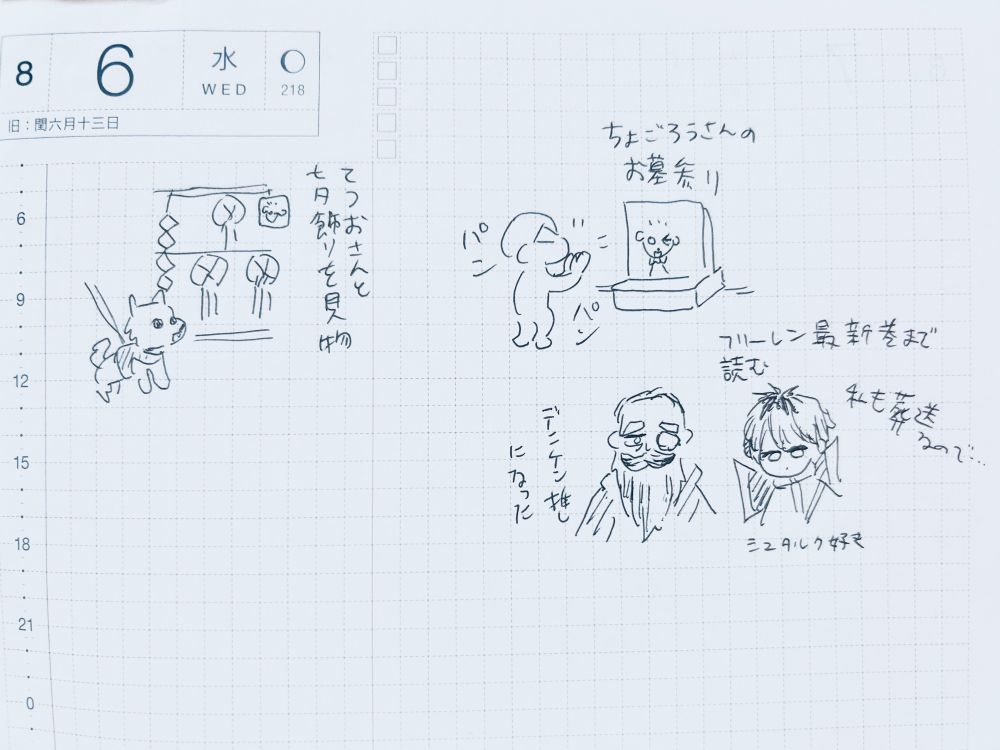 8
6
水
WED
218
旧：閏六月十三日
6
9
12
15
18
21
0
てつおさんと
七夕飾りを見物
ちよごろうさんの
お墓参り
パン
パン
フリーレン最新巻まで
読む
私も葬送
るので…
デンケン推し
になった
シュタルク好き